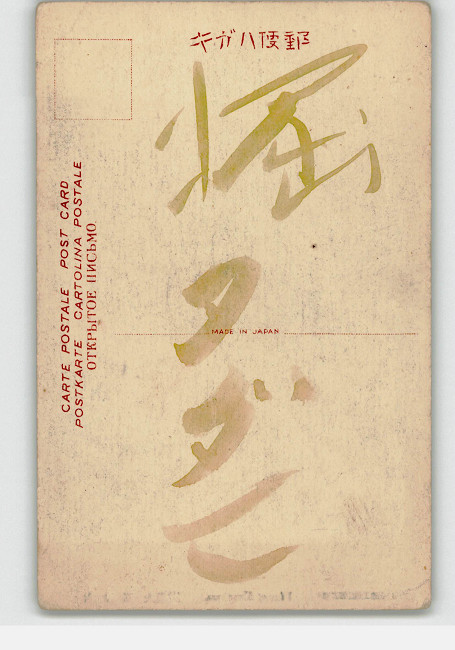 郵便ハガキ
CARTE POSTALE POST CARD
POSTKARTE CARTOLINA POSTALE
ОТКРЫТОЕ ПИСЬМО
MADE IN JAPAN
タダ